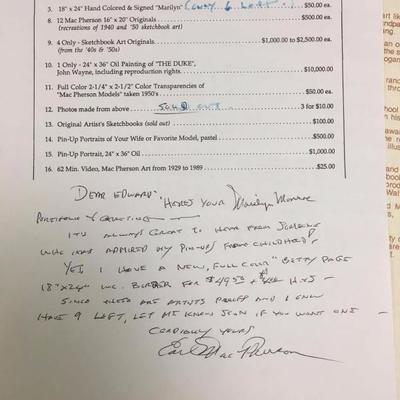 3. 18" x 24" Hand Colored & Signed "Marilyn" (only 6 Left) $50.00 ea.
8. 12 Mac Pherson 16" x 20" Originals $500.00 ea.
(recreations of 1940 and '50 sketchbook art)
9. 4 Only - Sketchbook Art Originals $1,000.00 to $2,500.00 ea.
(from the '40s & '50s)
10. 1 Only - 24" x 36" Oil Painting of "THE DUKE",
John Wayne, including reproduction rights. $10,000.00
11. Full Color 2-1/4" x 2-1/2" Color Transparencies of
"Mac Pherson Models" taken 1950's $50.00 ea.
12. Photos made from above SOLD OUT 3 for $10.00
13. Original Artist's Sketchbooks (sold out) $100.00
14. Pin-Up Portraits of Your Wife or Favorite Model, pastel $500.00
15. Pin-Up Portrait, 24" x 36" Oil $1,000.00
16. 62 Min. Video, Mac Pherson Art from 1929 to 1989 $25.00
DEAR EDWARD: HERES YOUR Marilyn Monroe
PORTFOLIO & GREETING
ITS ALWAYS GREAT TO HEAR FROM SOMEONE
WHO HAS ADMIRED MY PIN-UPS FROM CHILDHOOD!
YES, I HAVE A NEW, FULL COLOR "BETTY PAGE
18" x 24" INC. BORDER FOR $49.50 +
SINCE THESE ARE ARTISTS PROOFS AND I ONLY
HAVE 9 LEFT, LET ME KNOW SOON IF YOU WANT ONE -
CORDIALLY YOURS
Earl Mac Pherson